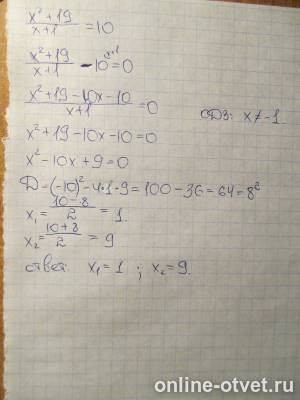 x²+19 / x+1 = 10
x²+19 / x+1 - 10^(x+1 = 0
x²+19-10x-10 / x+1 = 0
ОДЗ: x≠-1
x²+19-10x-10=0
x²-10x+9=0
D=(-10)²-4*1*9=100-36=64=8²
x₁= 10-8 / 2 = 1.
x₂= 10+8 / 2 = 9
ответ: x₁=1 ; x₂=9.
online-otvet.ru